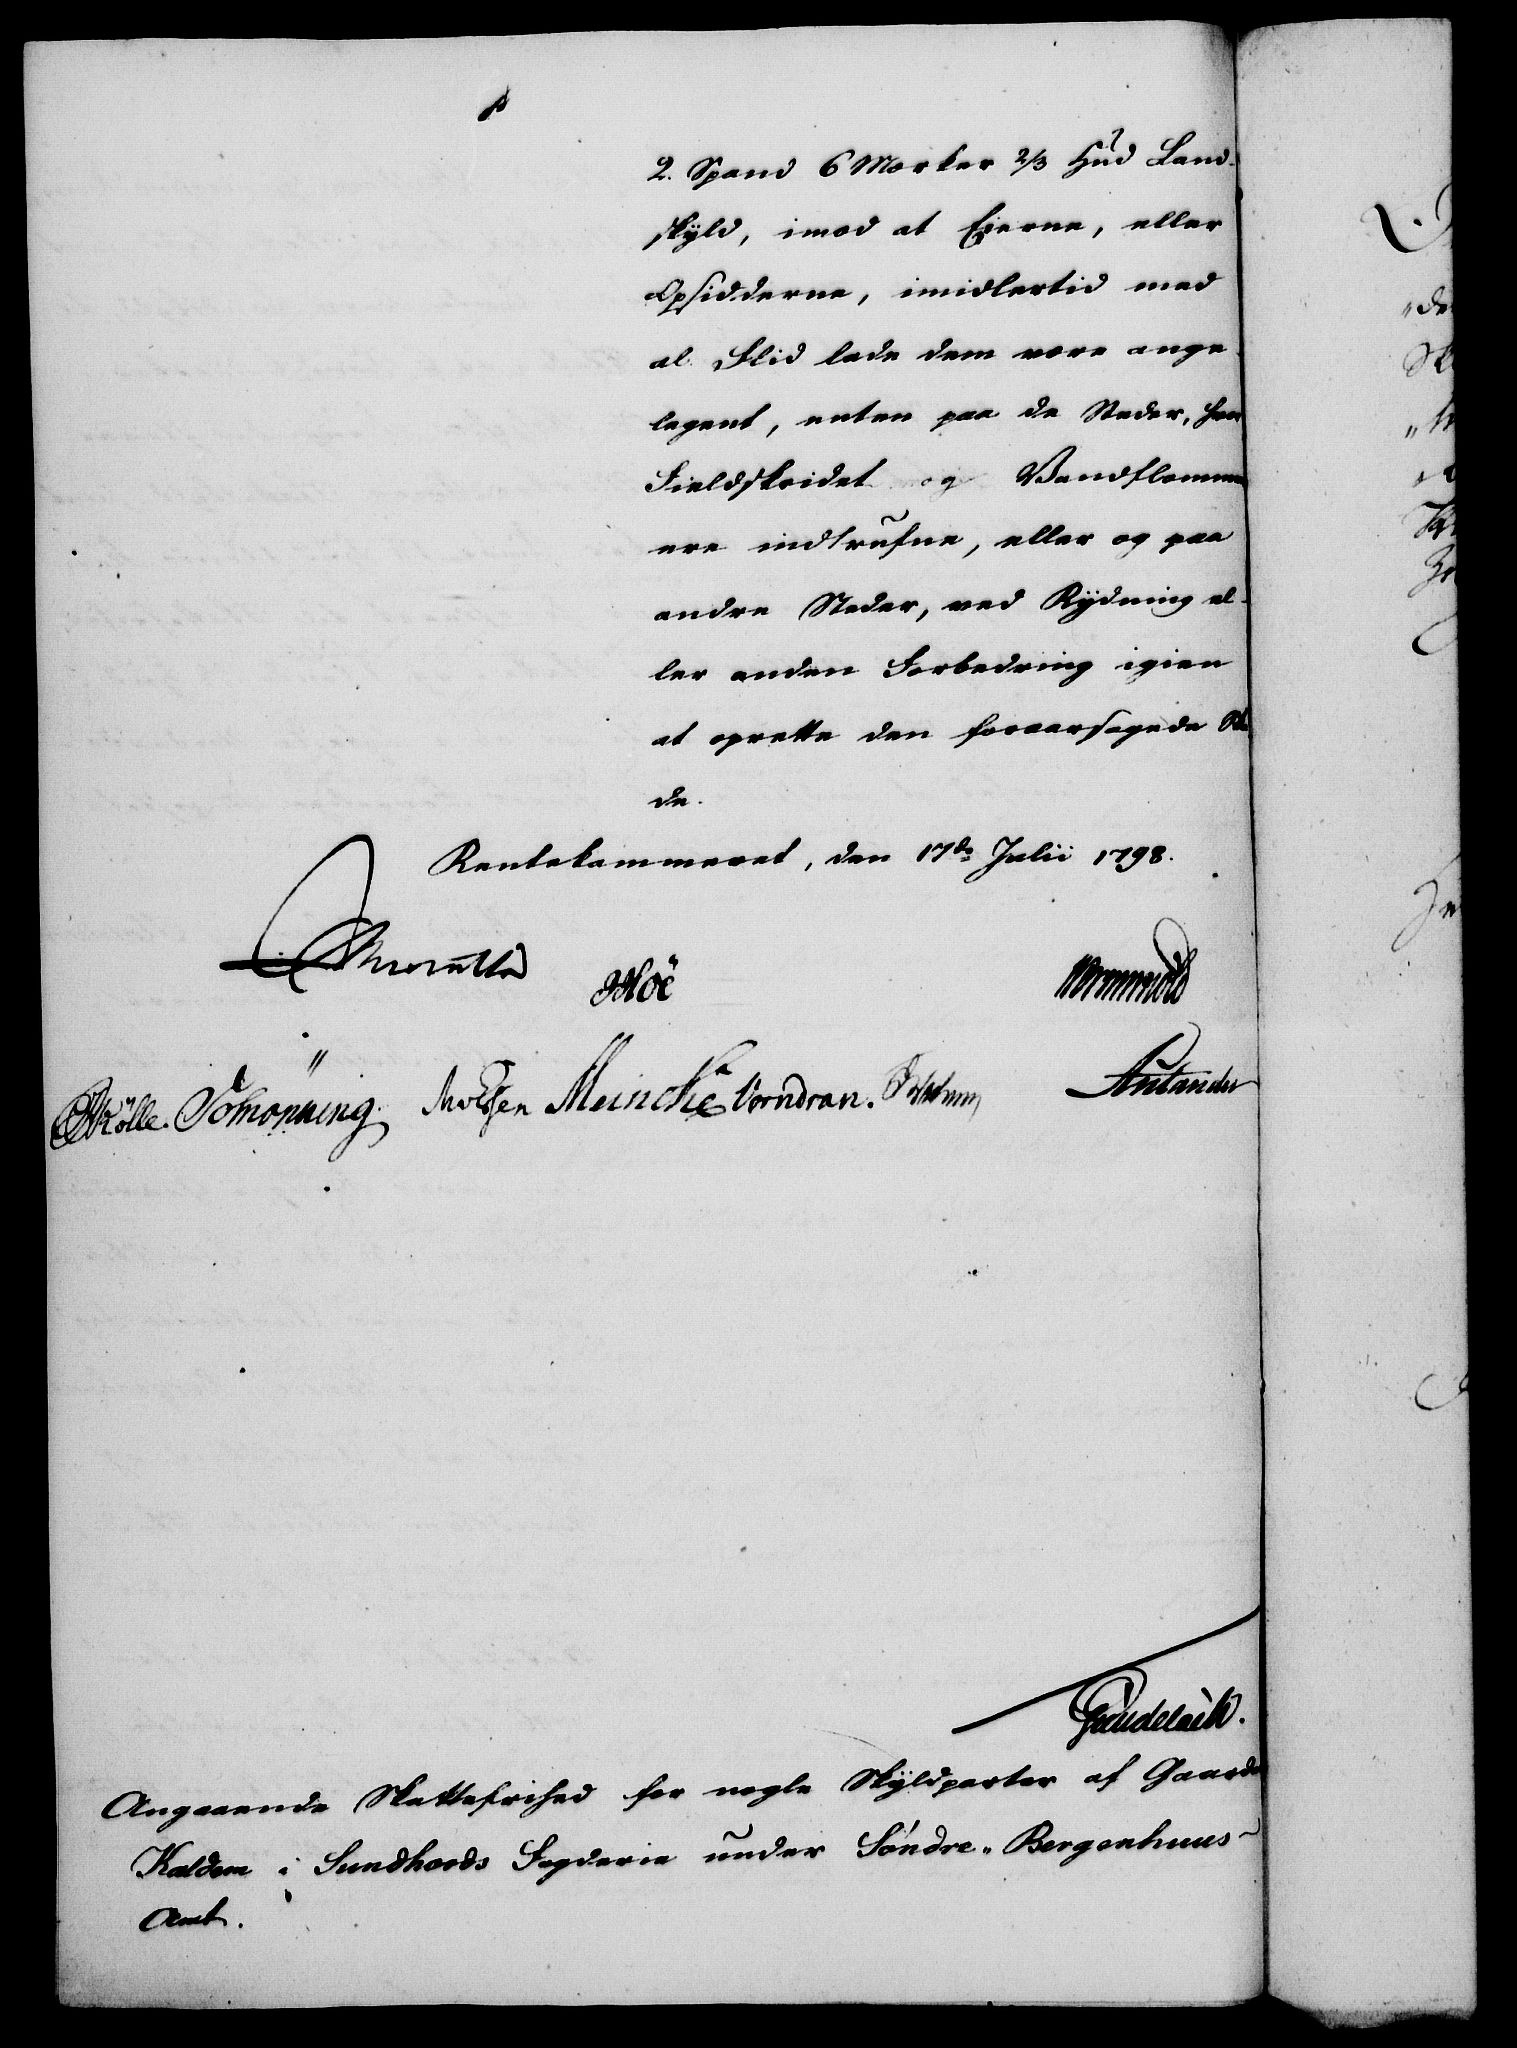 2. Spand 6 Marker 2/3 Hud Land-
skyld, imod at Eierne, eller
Opsidderne, imidlertid med
al Flid lade dem være ange-
legent, enten paa de Steder, hvor
Fieldskridet og Vandflommen
ere indtrufne, eller og paa
andre Steder, ved Rydning el-
ler anden Forbedring igien
at oprette den foraarsagede Ska-
de.
Rentekammeret, den 17de Julii 1798.
Hoë Wormskiold
Mölle. Schiönning Meincke Vorndran.
Angaaende Skattefrihed for nogle Skyldparter af Gaarden
Kaldem i Sundhords Fogderie under Søndre-Bergenhuus-
Amt.